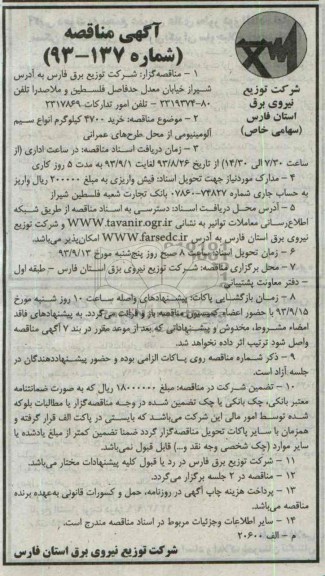 آگهی مناقصه
(شماره ۱۳۷-۹۳)
شرکت توزیع
نیروی برق
استان فارس
(سهامی خاص)
۱ - مناقصه‌گزار: شرکت توزیع برق فارس به آدرس
شیراز خیابان معدل حدفاصل فلسطین و ملاصدرا تلفن
۸۰-۲۳۱۹۳۷۴ - تلفن امور تدارکات ۲۳۱۷۸۶۹
۲ - موضوع مناقصه: خرید ۴۷۰۰ کیلوگرم انواع سیم
آلومینیومی از محل طرح‌های عمرانی
۳ - زمان دریافت اسناد مناقصه: در ساعت اداری (از
ساعت ۷/۳۰ الی ۱۴/۳۰) از تاریخ ۹۳/۸/۲۶ لغایت ۹۳/۹/۱ به مدت ۵ روز کاری
۴ - مدارک موردنیاز جهت تحویل اسناد: فیش واریزی به مبلغ ۲۰۰۰۰۰ ریال واریز
به حساب جاری شماره ۰۷۸۶۰۰۷۴۸۲۷ بانک تجارت شعبه فلسطین شیراز
۵ - آدرس محل دریافت اسناد: دسترسی به اسناد مناقصه از طریق شبکه
اطلاع‌رسانی معاملات توانیر به نشانی WWW.tavanir.ogr.ir و شرکت توزیع
نیروی برق استان فارس به آدرس WWW.farsedc.ir امکان‌پذیر می‌باشد.
۶ - زمان تحویل اسناد: ساعت ۸ صبح روز پنج‌شنبه مورخ ۹۳/۹/۱۳
۷ - محل برگزاری مناقصه: شرکت توزیع نیروی برق استان فارس - طبقه اول
- دفتر معاونت پشتیبانی
۸ - زمان بازگشایی پاکات: پیشنهادهای واصله ساعت ۱۰ روز شنبه مورخ
۹۳/۹/۱۵ با حضور اعضاء کمیسیون مناقصه باز و قرائت می‌گردد. به پیشنهادهای فاقد
امضاء مشروط، مخدوش و پیشنهاداتی که بعد از موعد مقرر در بند ۷ آگهی مناقصه
واصل شود ترتیب اثر داده نخواهد شد.
۹ - ذکر شماره مناقصه روی پاکات الزامی بوده و حضور پیشنهاددهندگان در
جلسه آزاد است.
۱۰ - تضمین شرکت در مناقصه: مبلغ ۱۸۰۰۰۰۰۰ ریال که به صورت ضمانتنامه
معتبر بانکی، چک بانکی یا چک تضمین شده در وجه مناقصه‌گزار یا مطالبات بلوکه
شده توسط امور مالی این شرکت می‌باشد که بایستی در پاکت الف قرار گرفته و
همزمان با سایر پاکات تحویل مناقصه‌گزار گردد ضمنا تضمین کمتر از مبلغ یادشده یا
سایر موارد (چک شخصی وجه نقد و...) قابل قبول نمی‌باشد.
۱۱ - شرکت توزیع برق فارس در رد یا قبول کلیه پیشنهادات مختار می‌باشد.
۱۲ - مناقصه در ۲ جلسه برگزار می‌گردد.
۱۳ - پرداخت هزینه چاپ آگهی در روزنامه، حمل و کسورات قانونی به‌عهده برنده
مناقصه می‌باشد.
۱۴ - سایر اطلاعات وجزئیات مربوط در اسناد مناقصه مندرج است.
م - الف ۲۰۶۰۰
شرکت توزیع نیروی برق استان فارس